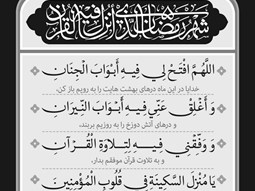 شهر رمضان الذی انزل فیه القرآن
اللَّهُمَّ افْتَحْ لِي فِيهِ أَبْوَابَ الْجِنَانِ
خدایا در این ماه درهای بهشت هایت را به رویم باز کن،
وَ أَغْلِقْ عَنِّي فِيهِ أَبْوَابَ النِّيرَانِ
و درهای آتش دوزخ را به رویم بربند،
وَ وَفِّقْنِي فِيهِ لِتِلَاوَةِ الْقُرْآنِ
و به تلاوت قرآن موفقم بدار،
يَا مُنْزِلَ السَّكِينَةِ فِي قُلُوبِ الْمُؤْمِنِينَ